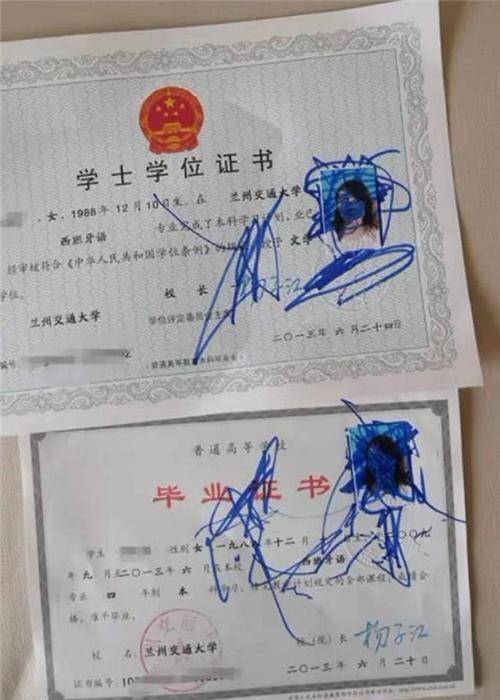 学士学位证书
，女，1988年12月10日生。在 兰州交通大学
西班牙语 专业完成了本科学习计划，业已
经审核符合《中华人民共和国学位条例》的规 授予 文学
学位。
兰州交通大学 校 长 杨子江
学位评定委员会主
编号 二〇一三年 六 月二十四日
（普通高等教育本科毕业生）
普通高等学校
毕业证书
学生 性别 女 一九八 年 十二 月 生 二〇〇九
年 九 月至二〇一三年 六 月在本校 西班牙语
专业 四 年制 本 科学习，修完教学计划规定的全部课程，成绩合
格，准予毕业。
校 名 兰州交通大学 校（院）长 杨子江
证书编号：10 二〇一三年 六 月 二十 日